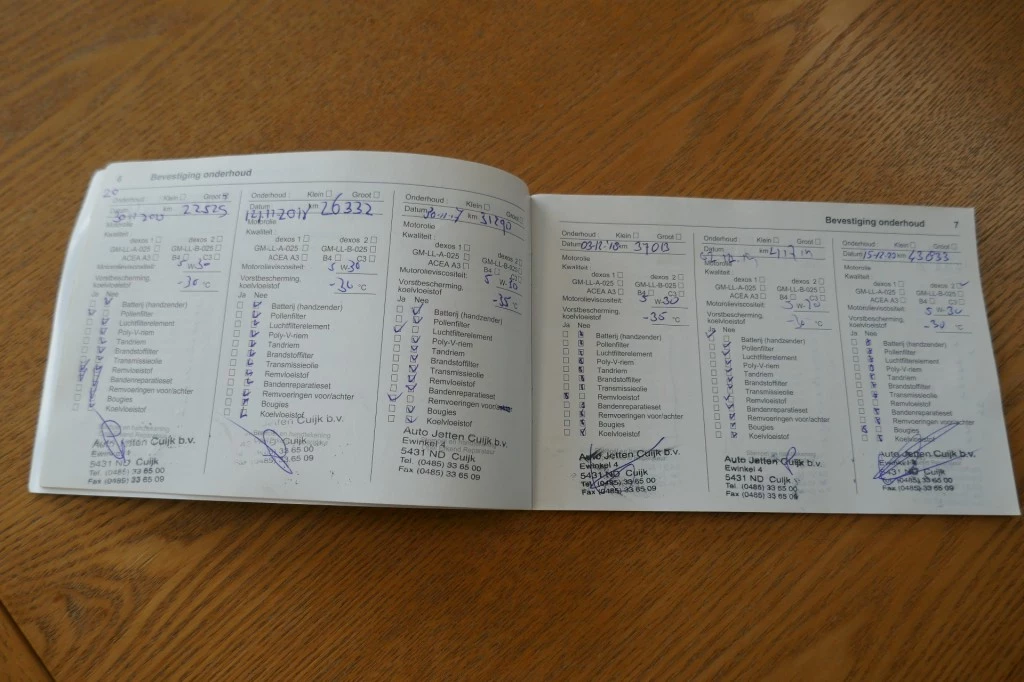 6 Bevestiging onderhoud
20
Onderhoud : Klein Groot
km 22525
Motorolie
Kwaliteit :
dexos 1 dexos 2
GM-LL-A-025 GM-LL-B-025
ACEA A3 B4 C3
Motorolieviscositeit: 5 W 30
Vorstbescherming.
koelvloeistof
Ja Nee
Batterij (handzender)
Pollenfilter
Luchtfilterelement
Poly-V-riem
Tandriem
Brandstoffilter
Transmissieolie
Remvloeistof
Bandenreparatieset
Remvoeringen voor/achter
Bougies
Koelvloeistof
Auto Jetten Cuijk b.v.
Ewinkel 4
5431 ND Cuijk
Tel. (0485) 33 65 00
Fax (0485) 33 65 09
Onderhoud : Klein Groot
Datum km 26332
Motorolie
Kwaliteit :
dexos 1 dexos 2
GM-LL-A-025 GM-LL-B-025
ACEA A3 B4 C3
Motorolieviscositeit: 5 W 30
Vorstbescherming.
koelvloeistof
Ja Nee
Batterij (handzender)
Pollenfilter
Luchtfilterelement
Poly-V-riem
Tandriem
Brandstoffilter
Transmissieolie
Remvloeistof
Bandenreparatieset
Remvoeringen voor/achter
Bougies
Koelvloeistof
Cuijk b.v.
Onderhoud : Klein Groot
Datum 30-11-17 km 31290
Motorolie
Kwaliteit :
dexos 1 dexos 2
GM-LL-A-025 GM-LL-B-025
ACEA A3 B4 C3
Motorolieviscositeit: 5 W 30
Vorstbescherming.
koelvloeistof -35 °C
Ja Nee
Batterij (handzender)
Pollenfilter
Luchtfilterelement
Poly-V-riem
Tandriem
Brandstoffilter
Transmissieolie
Remvloeistof
Bandenreparatieset
Remvoeringen
Bougies
Koelvloeistof
Auto Jetten Cuijk b.v.
Ewinkel 4
5431 ND Cuijk
Tel. (0485) 33 65 00
Fax (0485) 33 65 09
Bevestiging onderhoud 7
Onderhoud : Klein Groot
Datum 03-12-18 km 37013
Motorolie
Kwaliteit :
dexos 1 dexos 2
GM-LL-A-025 GM-LL-B-025
ACEA A3 B4 C3
Motorolieviscositeit: 5 W 30
Vorstbescherming.
koelvloeistof -35 °C
Ja Nee
Batterij (handzender)
Pollenfilter
Luchtfilterelement
Poly-V-riem
Tandriem
Brandstoffilter
Transmissieolie
Remvloeistof
Bandenreparatieset
Remvoeringen voor/achter
Bougies
Koelvloeistof
Auto Jetten Cuijk b.v.
Ewinkel 4
5431 ND Cuijk
Tel. (0485) 33 65 00
Fax (0485) 33 65 09
Onderhoud : Klein Groot
Datum km
Motorolie
Kwaliteit :
dexos 1 dexos 2
GM-LL-A-025 GM-LL-B-025
ACEA A3 B4 C3
Motorolieviscositeit:
Vorstbescherming.
koelvloeistof °C
Ja Nee
Batterij (handzender)
Pollenfilter
Luchtfilterelement
Poly-V-riem
Tandriem
Brandstoffilter
Transmissieolie
Remvloeistof
Bandenreparatieset
Remvoeringen voor/achter
Bougies
Koelvloeistof
Auto Jetten Cuijk b.v.
Ewinkel 4
5431 ND Cuijk
Tel. (0485) 33 65 00
Fax (0485) 33 65 09
Onderhoud : Klein Groot
Datum km 43633
Motorolie
Kwaliteit :
dexos 1 dexos 2
GM-LL-A-025 GM-LL-B-025
ACEA A3 B4 C3
Motorolieviscositeit: 5 W 30
Vorstbescherming.
koelvloeistof °C
Ja Nee
Batterij (handzender)
Pollenfilter
Luchtfilterelement
Poly-V-riem
Tandriem
Brandstoffilter
Transmissieolie
Remvloeistof
Bandenreparatieset
Remvoeringen voor/achter
Bougies
Koelvloeistof
Auto Jetten Cuijk b.v.
Ewinkel 4
5431 ND Cuijk
Tel. (0485) 33 65 00
Fax (0485) 33 65 09